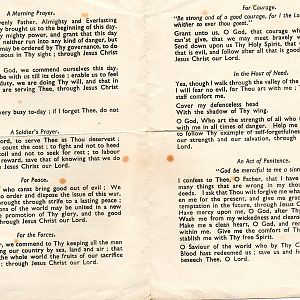 A Morning Prayer.
venly Father, Almighty and Everlasting
ly brought us to the beginning of this day.
y mighty power, and grant that this day
neither run into any kind of danger, but
may be ordered by Thy governance, to do
eousness in Thy sight ; through Jesus Christ
God, we commend ourselves this day.
be with us till its close ; enable us to feel
duty, we are doing Thy will, and that in
are serving Thee, through Jesus Christ
very busy to-day ; if I forget Thee, do not
A Soldier's Prayer.
ord, to serve Thee as Thou deservest ;
count the cost ; to fight and not to heed
and not to seek for rest ; to labour
reward, save that of knowing that we do
Jesus Christ our Lord.
For Peace.
who canst bring good out of evil ; We
o order and dispose the issue of this war,
brought through strife to a lasting peace ;
ons of the world may be united in a new
e promotion of Thy glory, and the good
ough Jesus Christ our Lord.
For the Forces.
r, we commend to Thy keeping all the men
ng our country by sea, land and air ; that
the whole world the fruits of our sacrifice
; through Jesus Christ our Lord.
For Courage.
"Be strong and of a good courage, for I the L
whithers
Grant unto us, O God, that courage which
can'st give, that we may meet bravely w
Send down upon us Thy Holy Spirit, that
that is evil, and follow after all that is good
Jesus Christ our Lord.
In the Hour of Need.
Yea, though I walk through the valley of the s
I will fear no evil, for Thou art with me ;
staff comfort me.
Cover my defenceless head
With the shadow of Thy wing.
O God, Who art the strength of all who
with me in all times of danger. Help me
to follow Thy example of self-forgetfulness
our strength and our salvation, through
Lord.
An Act of Penitence.
"God be merciful to me a sinn
I confess to Thee, O Father, that I have
many things that are wrong in my thou
deeds. I ask that Thou wilt forgive me wha
en me for the present, and give me grace
temptation in the future, through Jesus C
Have mercy upon me, O God, after Th
Wash me from my wickedness and cleanse
Make me a clean heart, O God, and ren
within me. Give me the comfort of Th
stablish me with Thy free Spirit.
O Saviour of the world who by Thy C
Blood hast redeemed us ; save us and he
beseech Thee, O Lord.